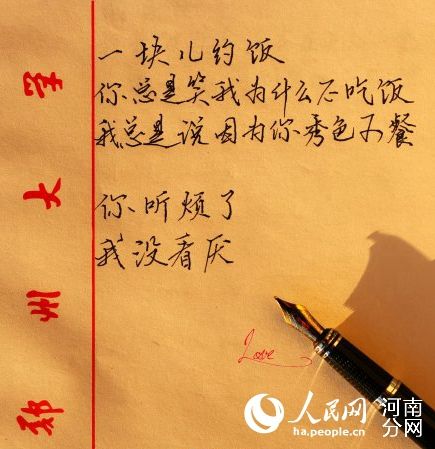 郑州大学
一块儿约饭
你总是笑我为什么不吃饭
我总是说因为你秀色可餐
你听烦了
我没看厌
Love
人民网 河南分网
ha.people.cn